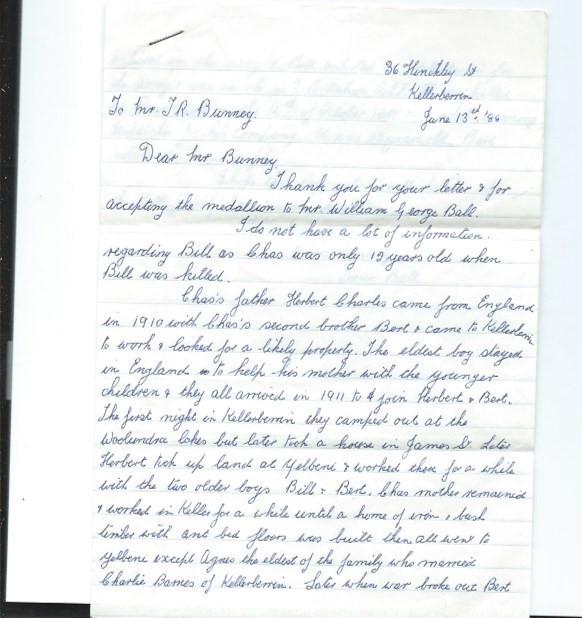 36 Hinckley St
Kellerberrin
June 13th, '86
To Mr. T.R. Bunney.
Dear Mr Bunney
Thank you for your letter & for
accepting the medallion to Mr. William George Ball.
I do not have a lot of information.
regarding Bill as Chas was only 12 years old when
Bill was killed.
Chas's father Herbert Charles came from England
in 1910 with Chas's second brother Bert & came to Kellerberrin
to work & looked for a likely property. The eldest boy stayed
in England to help his mother with the younger
children & they all arrived in 1911 to join Herbert & Bert.
The first night in Kellerberrin they camped out at the
Woolundra lakes but later took a house in James St. Later
Herbert took up land at Yelbeni & worked there for a while
with the two older boys Bill & Bert. Chas mother remained
& worked in Keller for a while until a home of iron & bush
timber with ant bed floors was built then all went to
Yelbeni except Agnes the eldest of the family who married
Charlie Barnes of Kellerberrin. Later when war broke out Bert